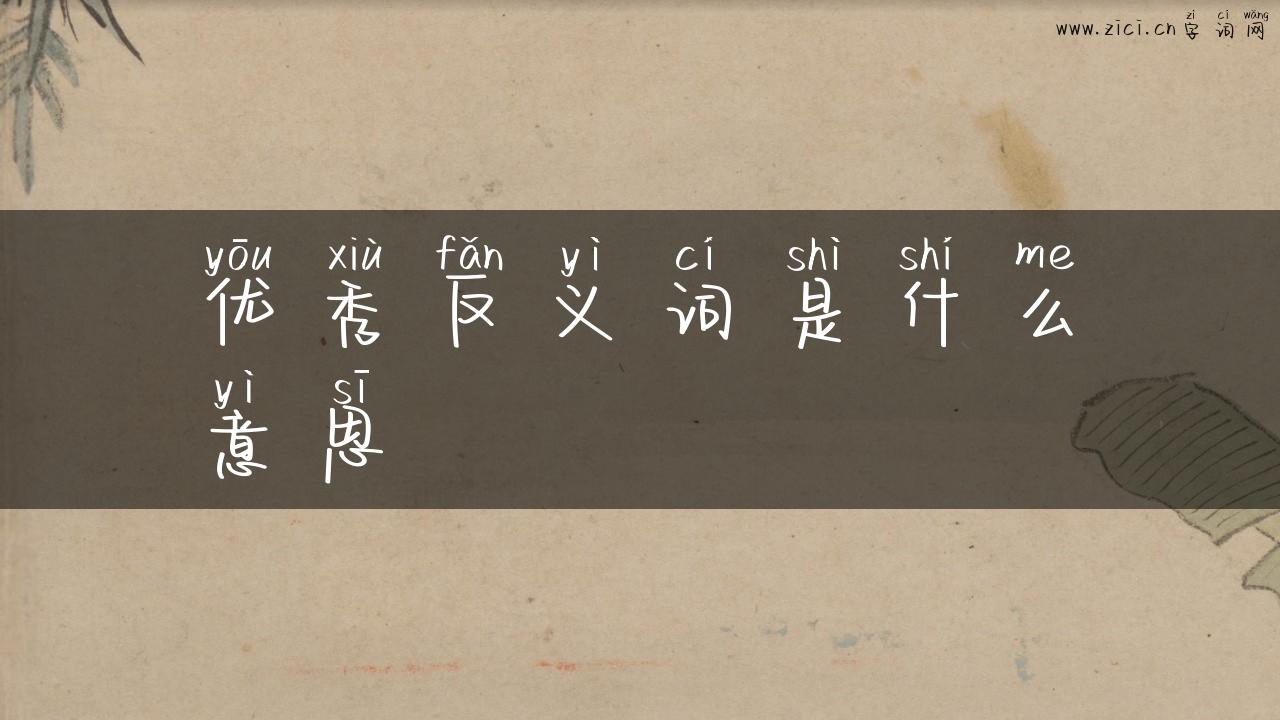 zì cí wǎng
www.zici.cn 字词网
yōu xiù fǎn yì cí shì shí me
优秀反义词是什么
yì sī
意思